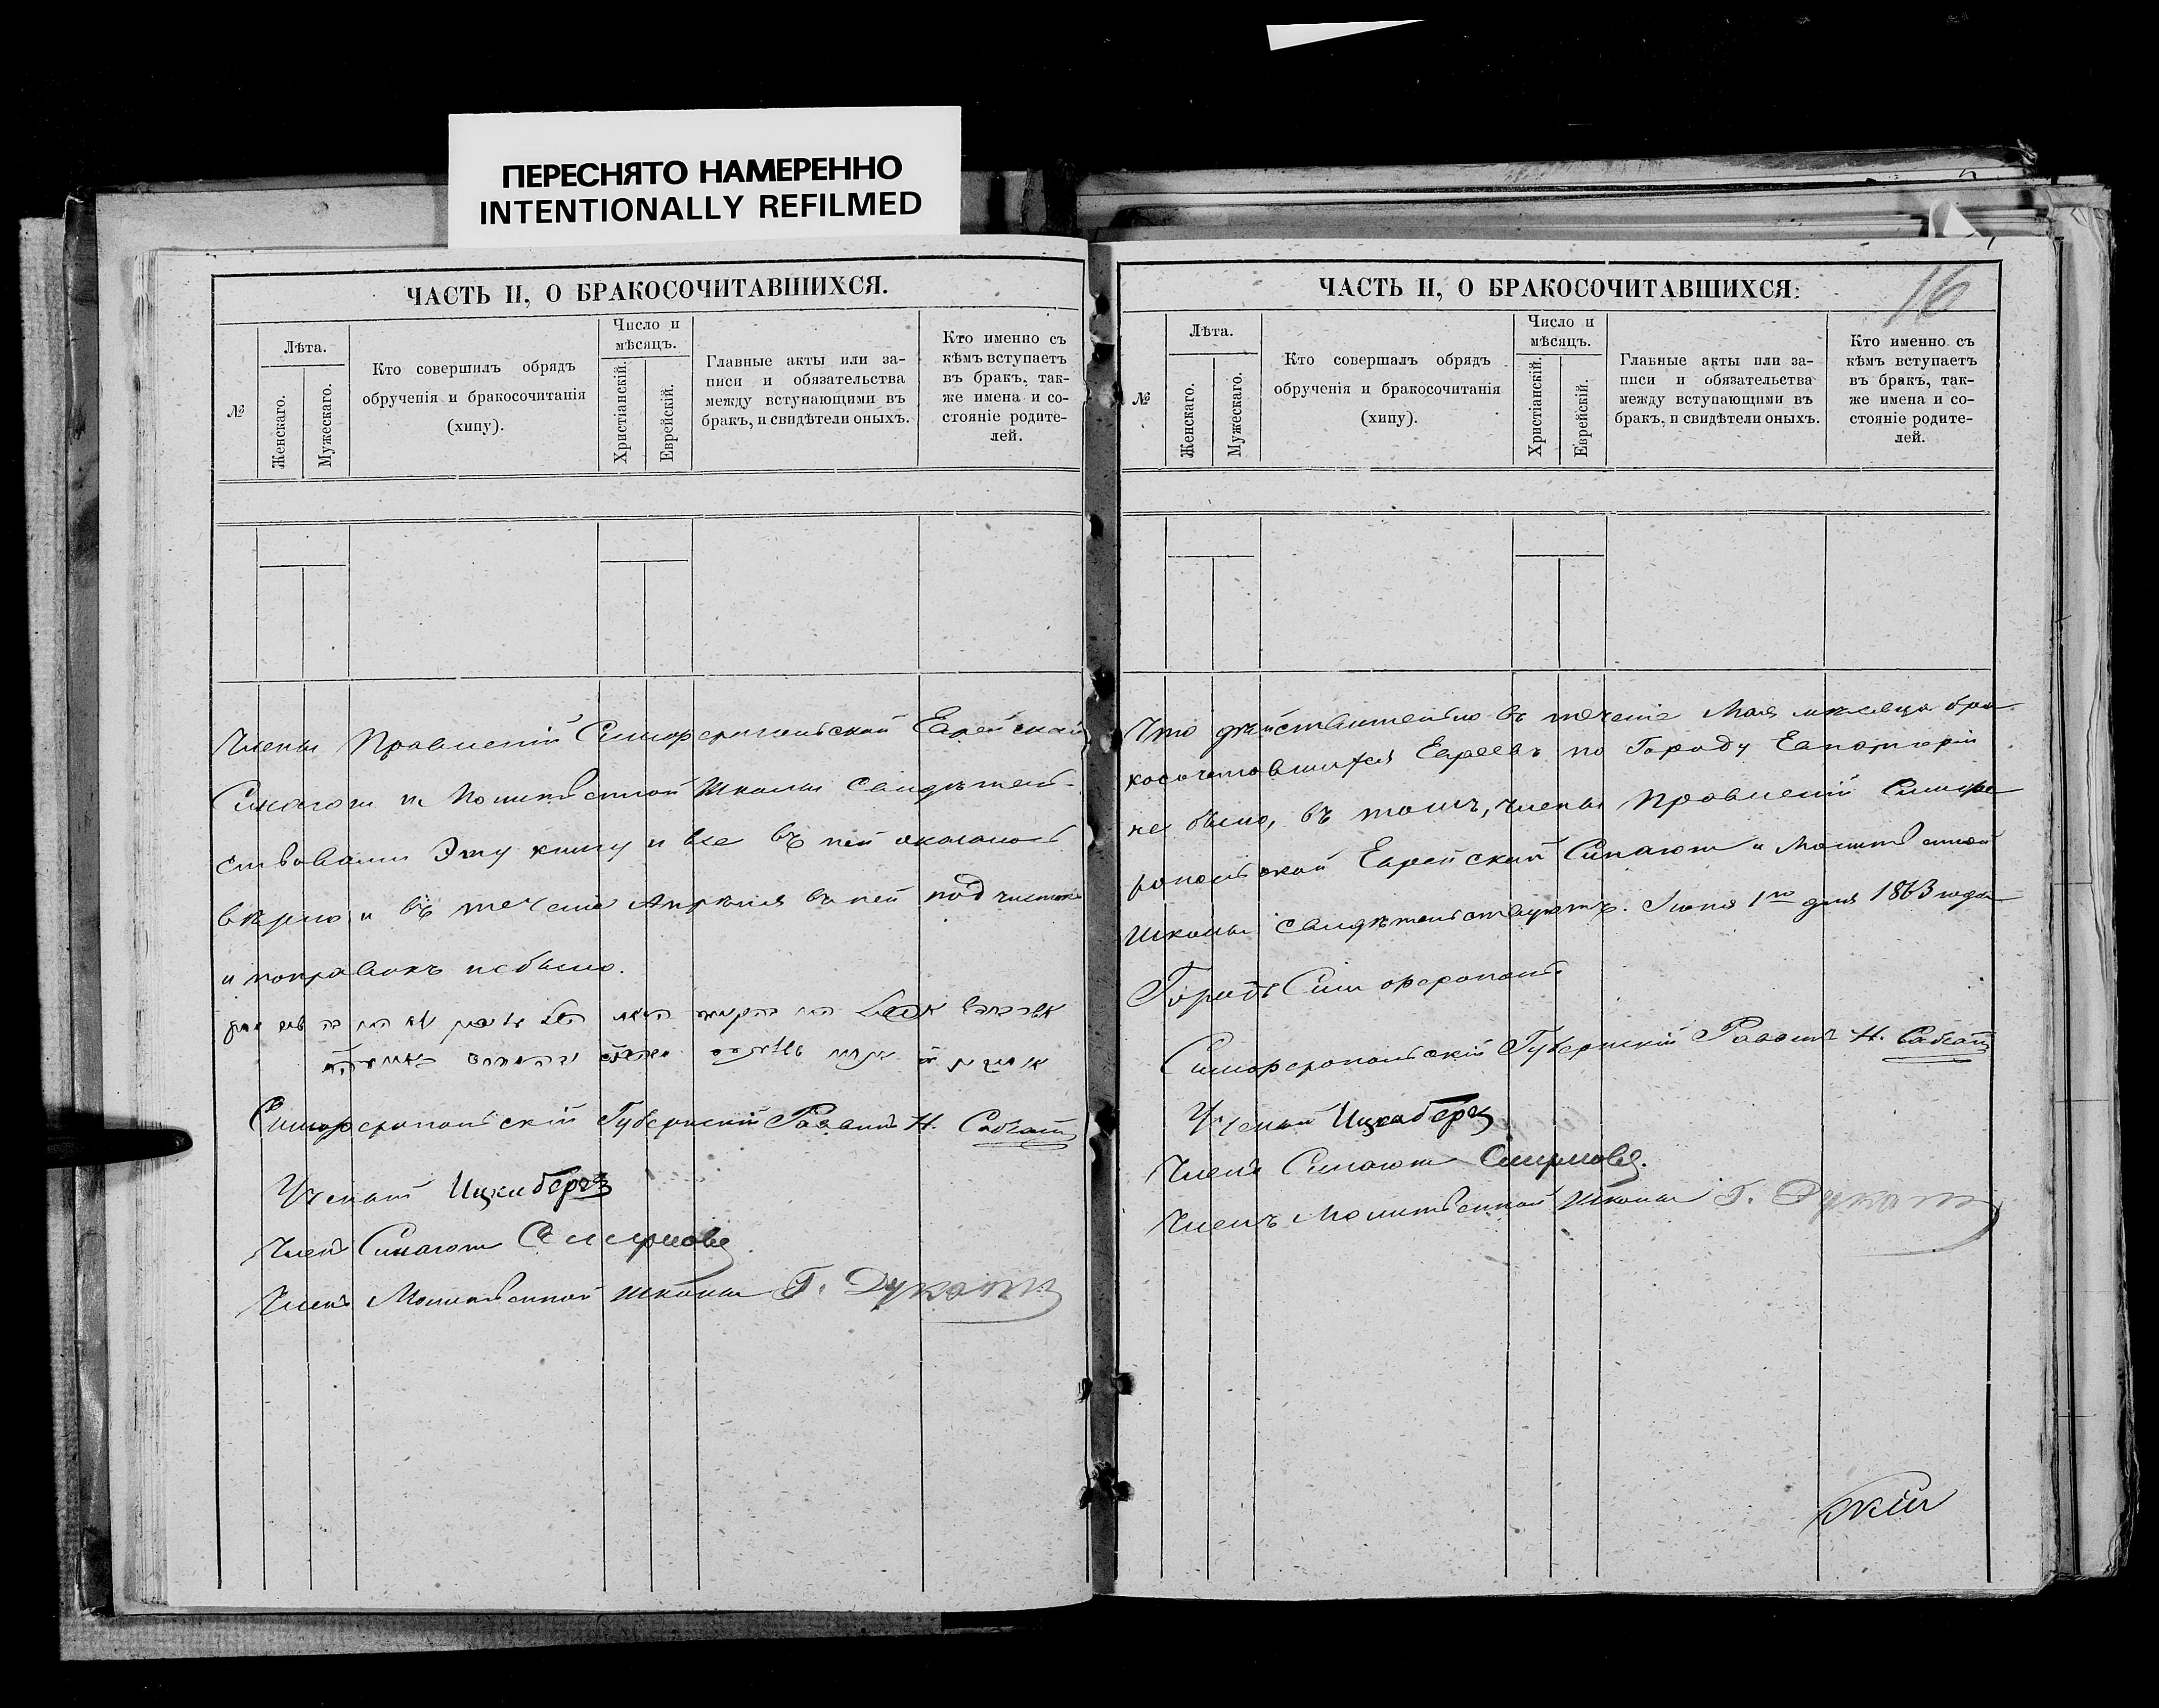 ПЕРЕСНЯТО НАМЕРЕННО
INTENTIONALLY REFILMED
ЧАСТЬ II, О БРАКОСОЧИТАВШИХСЯ.
№
Лѣта.
Женскаго.
Мужескаго.
Кто совершилъ обрядъ
обрученія и бракосочитанія
(хипу).
Число и
мѣсяцъ.
Христіанскій.
Еврейскій.
Главные акты или за-
писи и обязательства
между вступающими въ
бракъ, и свидѣтели оныхъ.
Кто именно съ
кѣмъ вступаетъ
въ бракъ, так-
же имена и со-
стояніе родите-
лей.
Члены Правленій Симферопольской Еврейской
Синагоги и Молитвенной Школы свидѣтель-
ствовали Эту книгу и все въ ней оказалось
вѣрно и въ теченіе Апрѣля въ ней подчистокъ
и поправокъ не было.
Симферопольскій Губернскій Раввинъ Н.
Ученый Ицкибергъ
Членъ Синагоги Смирновъ
Членъ Молитвенной Школы Г. Дукатъ
16
ЧАСТЬ II, О БРАКОСОЧИТАВШИХСЯ:
№
Лѣта.
Женскаго.
Мужескаго.
Кто совершалъ обрядъ
обрученія и бракосочитанія
(хипу).
Число и
мѣсяцъ.
Христіанскій.
Еврейскій.
Главные акты или за-
писи и обязательства
между вступающими въ
бракъ, и свидѣтели оныхъ.
Кто именно съ
кѣмъ вступаетъ
въ бракъ, так-
же имена и со-
стояніе родите-
лей.
Что дѣйствительно въ теченіе Мая мѣсяца бра-
косочетавшихся Евреевъ по Городу Евпаторіи
не было, въ томъ, члены Правленій Симфе-
ропольской Еврейской Синагоги и Молитвенной
Школы свидѣтельствуютъ. Іюня 1го дня 1863 года
Городъ Симферополь.
Симферопольскій Губернскій Раввинъ Н.
Ученый Ицкибергъ
Членъ Синагоги Смирновъ.
Членъ Молитвенной Школы Г. Дукатъ